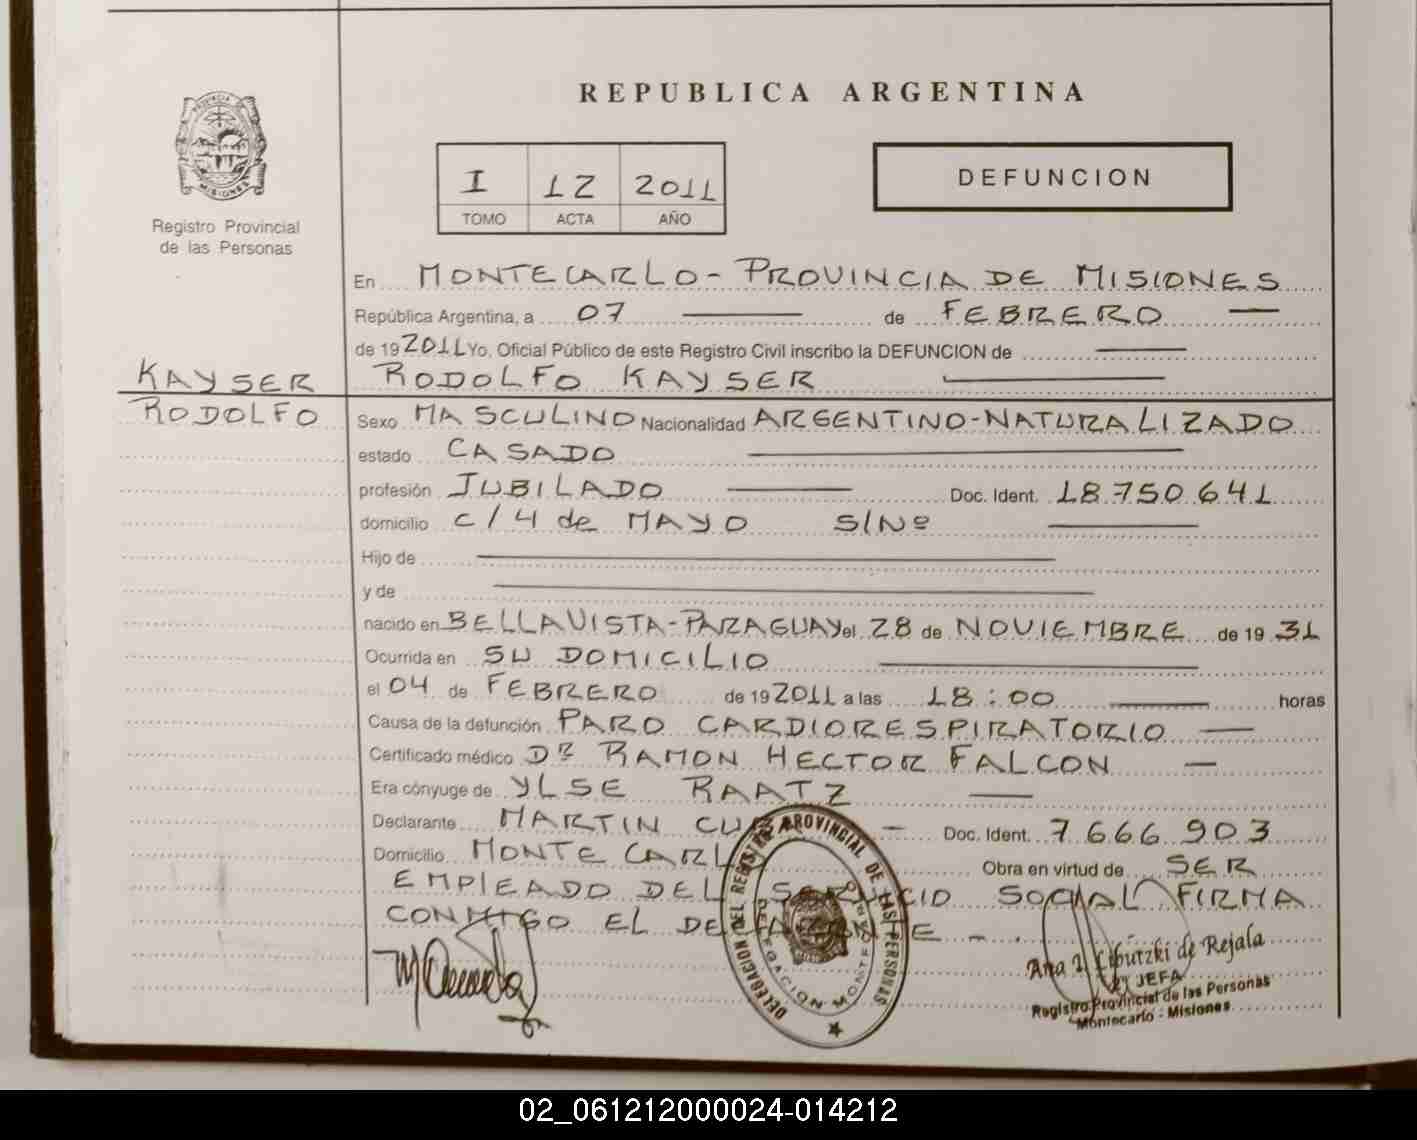 REPUBLICA ARGENTINA
PROVINCIA DE
MISIONES
Registro Provincial
de las Personas
I 12 2011
TOMO ACTA AÑO
DEFUNCION
En MONTECARLO - PROVINCIA DE MISIONES
República Argentina, a 07 de FEBRERO
de 192011 Yo, Oficial Público de este Registro Civil inscribo la DEFUNCION de
KAYSER RODOLFO KAYSER
RODOLFO Sexo MASCULINO Nacionalidad ARGENTINO-NATURALIZADO
estado CASADO
profesión JUBILADO Doc. Ident. 18.750.641
domicilio c/ 4 de MAYO S/Nº
Hijo de
y de
nacido en BELLAVISTA-PARAGUAY el 28 de NOVIEMBRE de 19 31
Ocurrida en SU DOMICILIO
el 04 de FEBRERO de 192011 a las 18:00 horas
Causa de la defunción PARO CARDIORESPIRATORIO
Certificado médico Dr RAMON HECTOR FALCON
Era cónyuge de YLSE RAATZ
Declarante MARTIN Doc. Ident. 7.666.903
Domicilio MONTECARLO Obra en virtud de SER
EMPLEADO DEL SERVICIO SOCIAL FIRMA
CONMIGO EL DECLARANTE -.
DELEGACION DEL REGISTRO PROVINCIAL DE LAS PERSONAS
DELEGACION MONTECARLO
Ana de Rejala
JEFA
Registro Provincial de las Personas
Montecarlo - Misiones
02_061212000024-014212